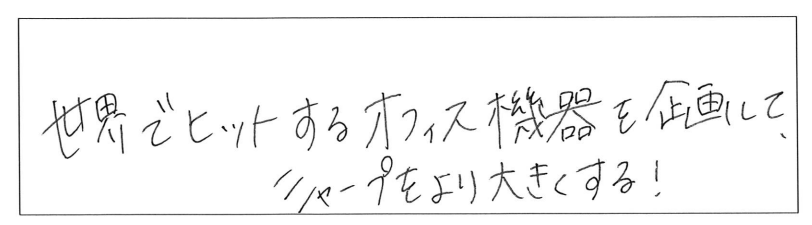 世界でヒットするオフィス機器を企画して、
シャープをより大きくする!